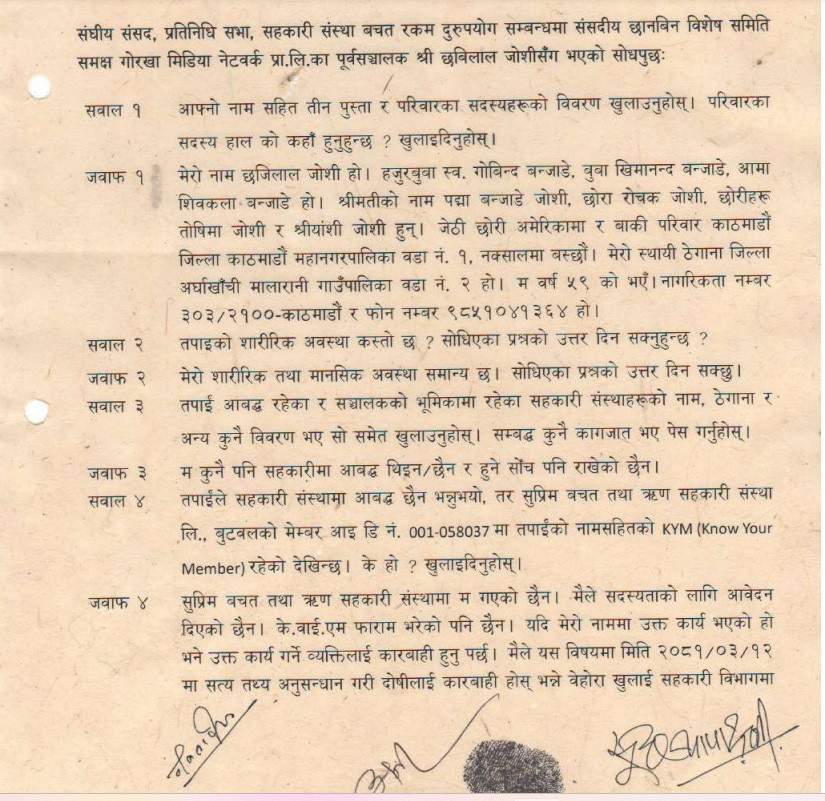 संघीय संसद, प्रतिनिधि सभा, सहकारी संस्था बचत रकम दुरुपयोग सम्बन्धमा संसदीय छानबिन विशेष समिति
समक्ष गोरखा मिडिया नेटवर्क प्रा.लि.का पूर्वसञ्चालक श्री छविलाल जोशीसँग भएको सोधपुछः
सवाल १ आफ्नो नाम सहित तीन पुस्ता र परिवारका सदस्यहरूको विवरण खुलाउनुहोस्। परिवारका
सदस्य हाल को कहाँ हुनुहुन्छ ? खुलाइदिनुहोस्।
जवाफ १ मेरो नाम छजिलाल जोशी हो। हजुरबुवा स्व. गोबिन्द बन्जाडे, बुवा खिमानन्द बन्जाडे, आमा
शिवकला बन्जाडे हो। श्रीमतीको नाम पद्मा बन्जाडे जोशी, छोरा रोचक जोशी, छोरीहरू
तोषिमा जोशी र श्रीयांशी जोशी हुन्। जेठी छोरी अमेरिकामा र बाकी परिवार काठमाडौं
जिल्ला काठमाडौं महानगरपालिका वडा नं. १, नक्सालमा बस्छौं। मेरो स्थायी ठेगाना जिल्ला
अर्घाखाँची मालारानी गाउँपालिका वडा नं. २ हो। म वर्ष ५९ को भएँ। नागरिकता नम्बर
३०३/२१००-काठमाडौं र फोन नम्बर ९८५१०४१३६४ हो।
सवाल २ तपाइको शारीरिक अवस्था कस्तो छ ? सोधिएका प्रश्नको उत्तर दिन सक्नुहुन्छ ?
जवाफ २ मेरो शारीरिक तथा मानसिक अवस्था समान्य छ। सोधिएका प्रश्नको उत्तर दिन सक्छु।
सवाल ३ तपाईं आबद्ध रहेका र सञ्चालकको भूमिकामा रहेका सहकारी संस्थाहरूको नाम, ठेगाना र
अन्य कुनै विवरण भए सो समेत खुलाउनुहोस्। सम्बद्ध कुनै कागजात भए पेस गर्नुहोस्।
जवाफ ३ म कुनै पनि सहकारीमा आबद्ध थिइन/छैन र हुने सोँच पनि राखेको छैन।
सवाल ४ तपाईंले सहकारी संस्थामा आबद्ध छैन भन्नुभयो, तर सुप्रिम बचत तथा ऋण सहकारी संस्था
लि., बुटवलको मेम्बर आइ डि नं. 001-058037 मा तपाईंको नामसहितको KYM (Know Your
Member) रहेको देखिन्छ। के हो ? खुलाइदिनुहोस्।
जवाफ ४ सुप्रिम बचत तथा ऋण सहकारी संस्थामा म गएको छैन। मैले सदस्यताको लागि आवेदन
दिएको छैन। के.वाई.एम फाराम भरेको पनि छैन। यदि मेरो नाममा उक्त कार्य भएको हो
भने उक्त कार्य गर्ने व्यक्तिलाई कारबाही हुनु पर्छ। मैले यस विषयमा मिति २०८१/०३/१२
मा सत्य तथ्य अनुसन्धान गरी दोषीलाई कारबाही होस् भन्ने वेहोरा खुलाई सहकारी विभागमा